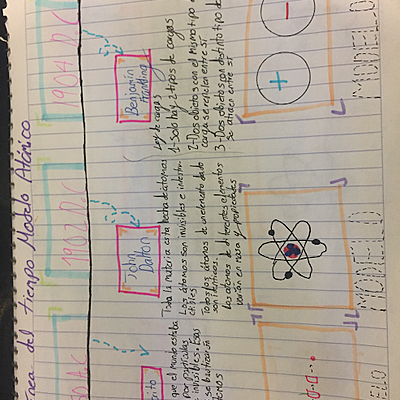 nea del tiempo Modelo Atómico
D.C
1902 D.C
1904 D.C
rito
que el mundo estaba
por partículas
invisibles. Esas
se bautizarón
tomos
John
Dalton
Toda la materia esta hecha de átomos
Los átomos son invisibles e indestru-
ctibles
Todos los átomos de un elemento dado
son identicos.
Los átomos de diferentes elementos
varían en masa y propiedades
Benjamin
Frankling
Ley de cargas
1- Solo hay 2 tipos de cargas
2- Dos objetos con el mismo tipo
carga se repelen entre sí
3- Dos objetos con distinto tipo de
se atraen entre sí
+
-
ELO
MODELO
MODELO